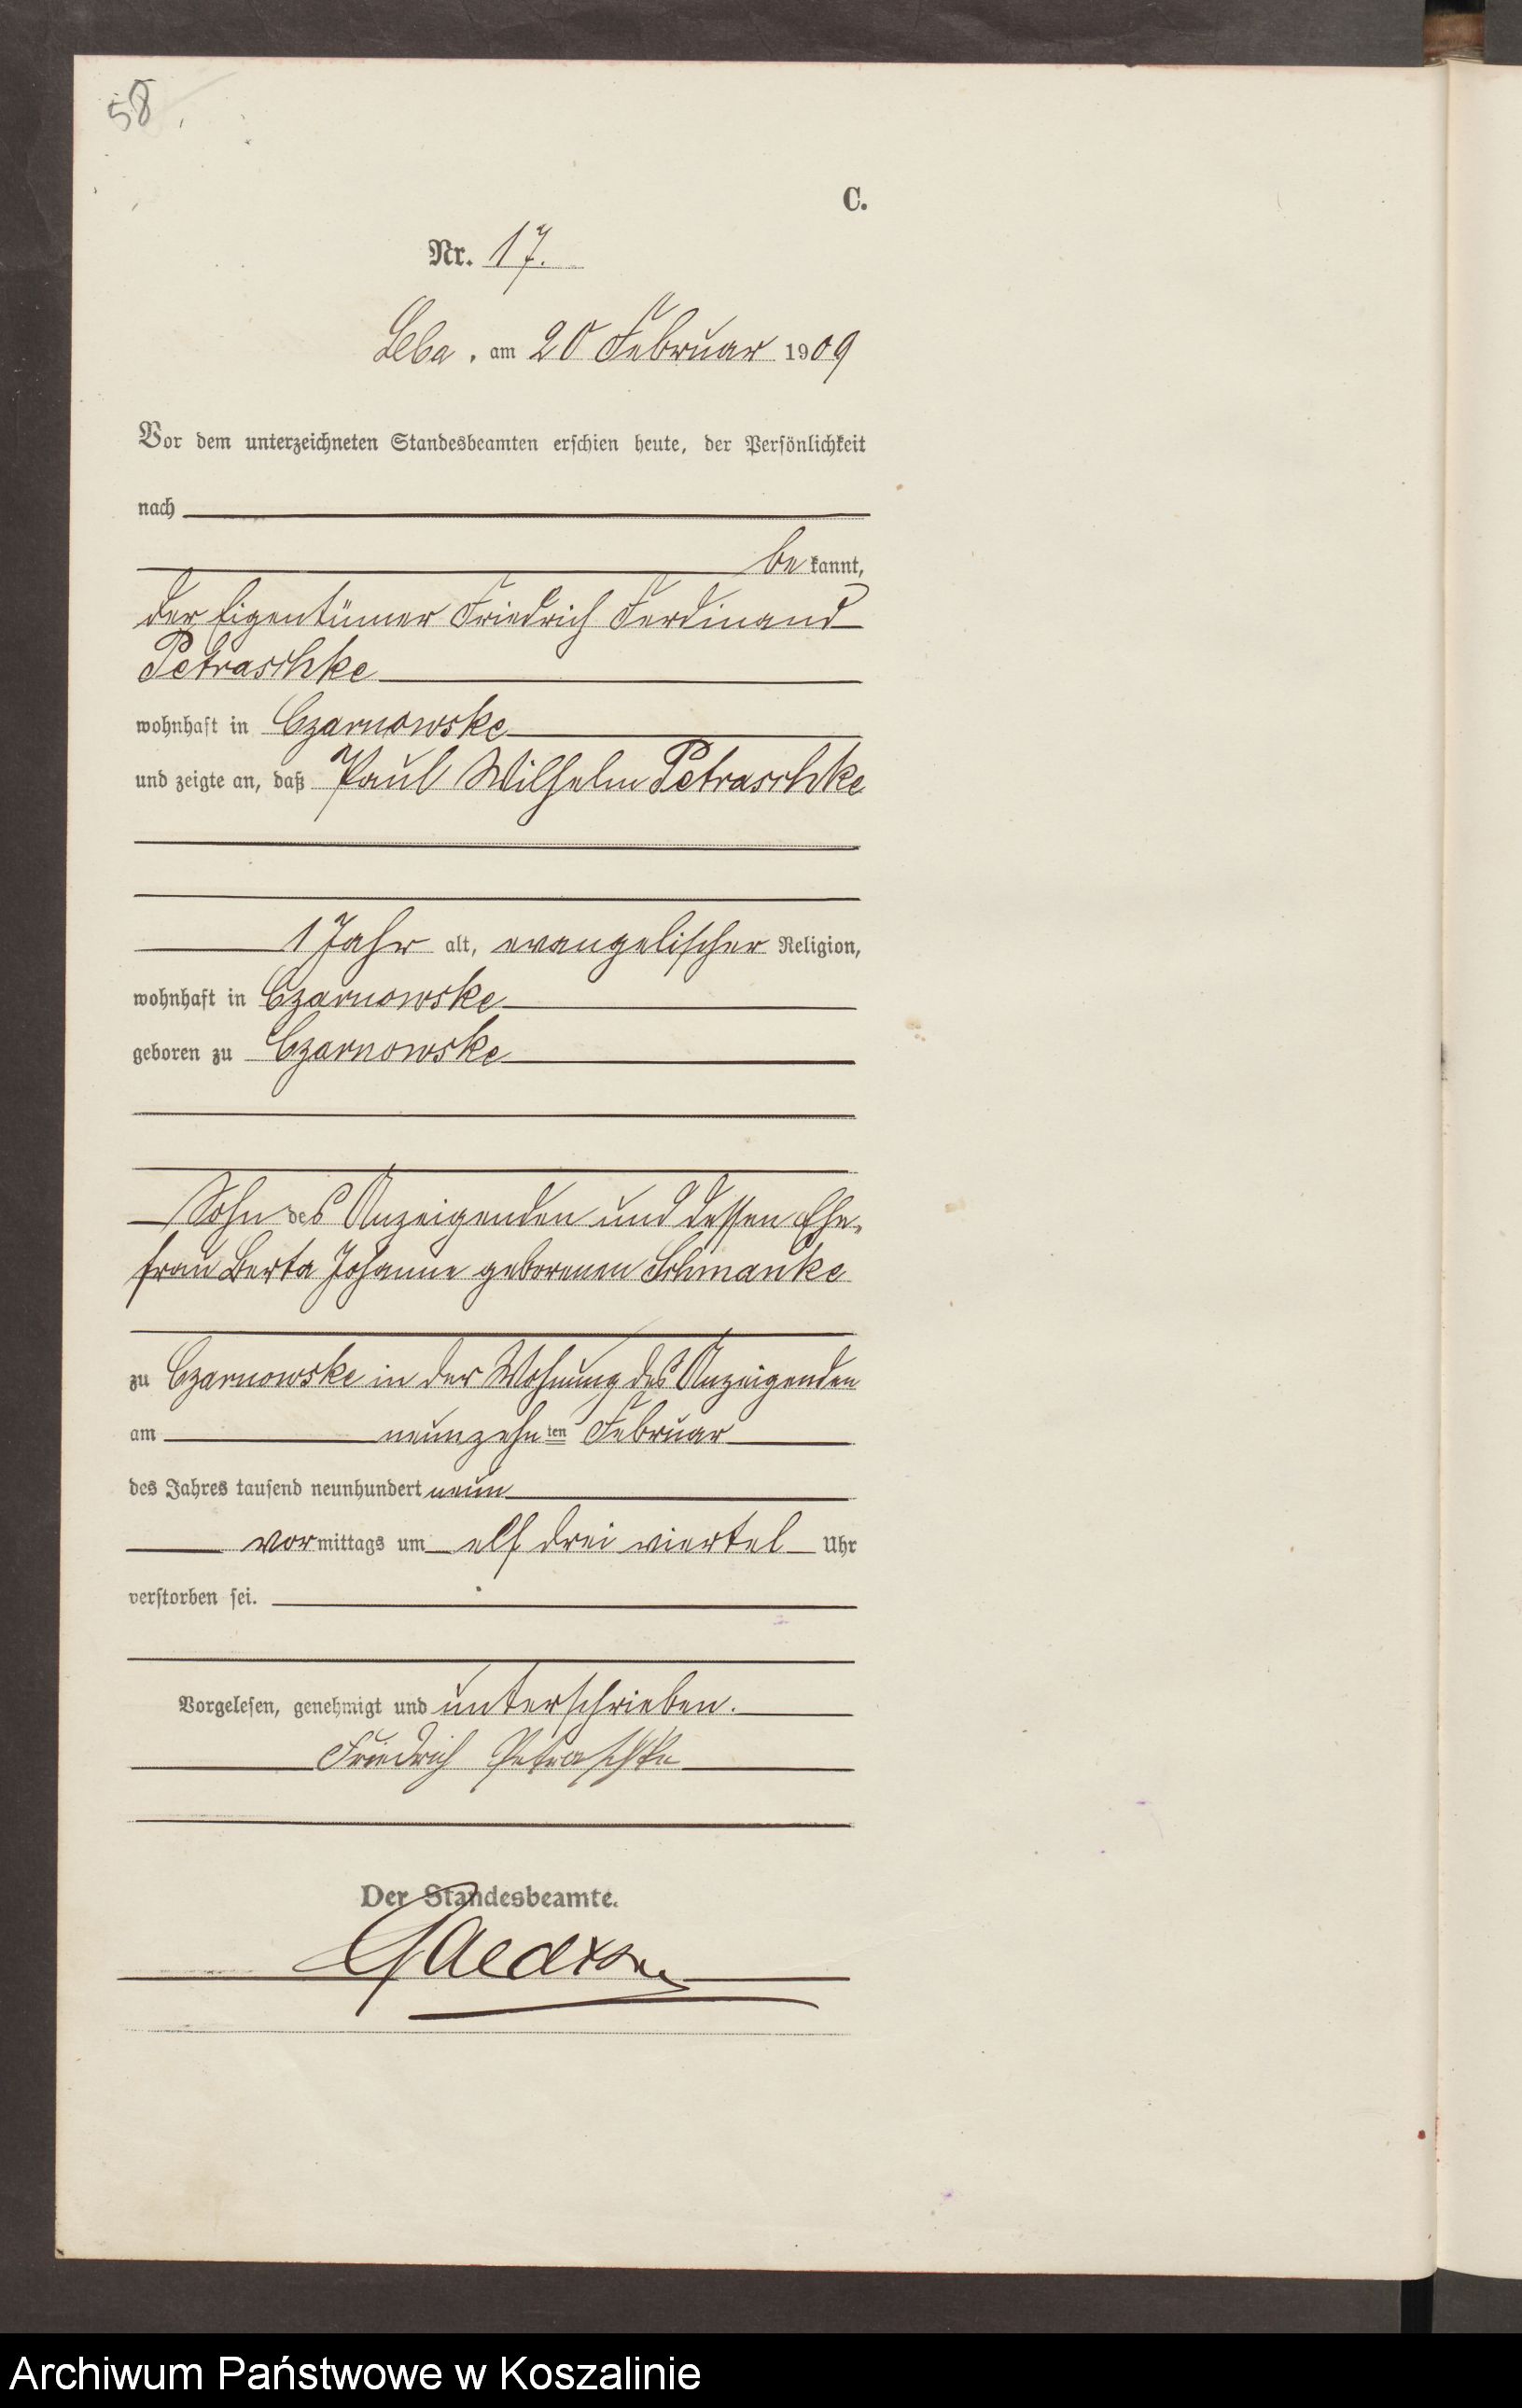 58.
C.
Nr. 17.
Leba, am 20 Februar 1909
Vor dem unterzeichneten Standesbeamten erschien heute, der Persönlichkeit
nach
bekannt,
der Eigentümer Friedrich Ferdinand
Petraschke
wohnhaft in Czarnowske
und zeigte an, daß Paul Wilhelm Petraschke
1 Jahr alt, evangelischer Religion,
wohnhaft in Czarnowske
geboren zu Czarnowske
Sohn des Anzeigenden und dessen Ehe-
frau Berta Johanne geborenen Schmanke
zu Czarnowske in der Wohnung des Anzeigenden
am neunzehnten Februar
des Jahres tausend neunhundert neun
vormittags um elf drei viertel Uhr
verstorben sei.
Vorgelesen, genehmigt und unterschrieben.
Friedrich Petraschke
Der Standesbeamte.
Archiwum Państwowe w Koszalinie